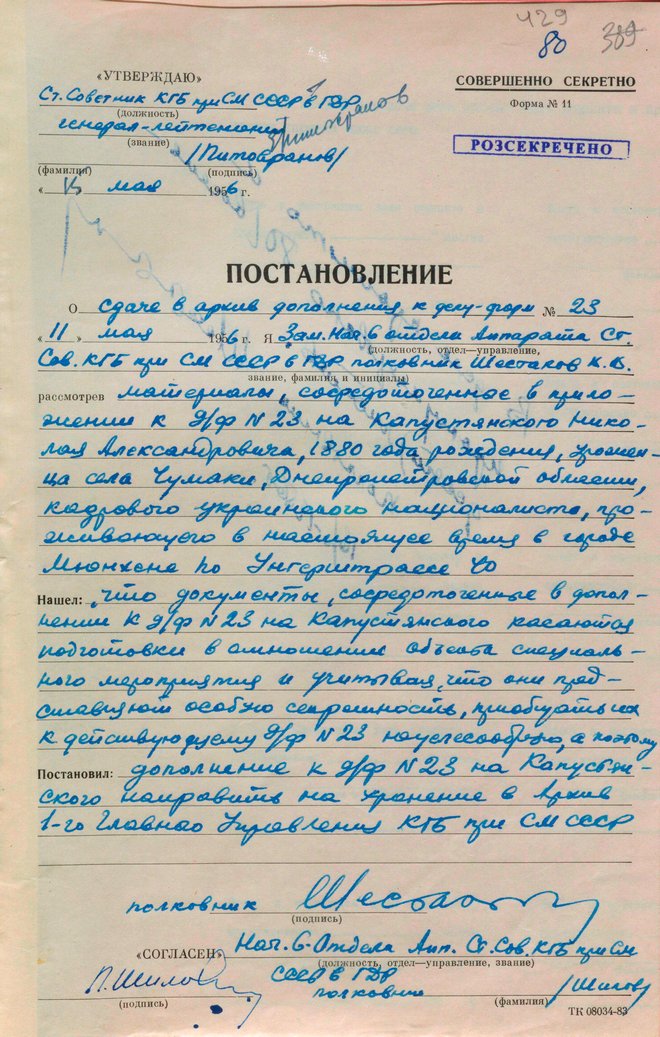 429
80 389
«УТВЕРЖДАЮ»
СОВЕРШЕННО СЕКРЕТНО
Ст. Советник КГБ при СМ СССР в ГДР
(должность)
Форма № 11
генерал-лейтенант
(звание)
РОЗСЕКРЕЧЕНО
/Питовранов/
(фамилия) (подпись)
«15» мая 1956 г.
ПОСТАНОВЛЕНИЕ
О сдаче в архив дополнения к делу-форм № 23
«11» мая 1956 г. Я Зам. Нач. 6 отдела Аппарата Ст.
(должность, отдел—управление,
Сов. КГБ при СМ СССР в ГДР полковник Шестаков
звание, фамилия и инициалы)
рассмотрев материалы, сосредоточенные в прило-
жении к д/ф N 23 на Капустянского Нико-
лая Александровича, 1880 года рождения, урожен-
ца села Чумаки, Днепропетровской области,
кадрового украинского националиста, про-
живающего в настоящее время в городе
Мюнхене по Унгерштрассе
Нашел: что документы, сосредоточенные в допол-
нении к д/ф N 23 на Капустянского касаются
подготовки в отношении объекта специаль-
ного мероприятия и учитывая, что они пред-
ставляют особую секретность, приобщать их
к действующему д/ф N 23 нецелесообразно, а поэтому
Постановил: дополнение к д/ф N 23 на Капустян-
ского направить на хранение в Архив
1-го Главного Управления КГБ при СМ СССР
полковник Шестаков
(подпись)
«СОГЛАСЕН» Нач. 6 Отдела Апп. Ст. Сов. КГБ при СМ
(должность, отдел—управление, звание)
СССР в ГДР
полковник /Шилов/
(подпись) (фамилия)
ТК 08034-83